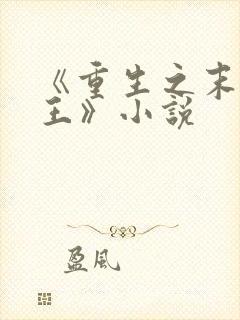 《重生之末
王》小说
盈風